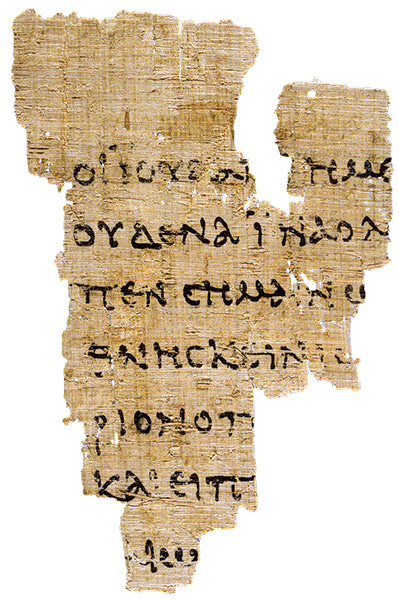 ΟΙΪΟΥΔΑΙ ΗΜΕ
ΟΥΔΕΝΑΪΝΑΟΛ
ΠΕΝΣΗΜΑΙΝΩ
ΘΝΗΣΚΕΙΝΙΣ
ΡΙΟΝΟΠ
ΚΑΙΕΙΠ